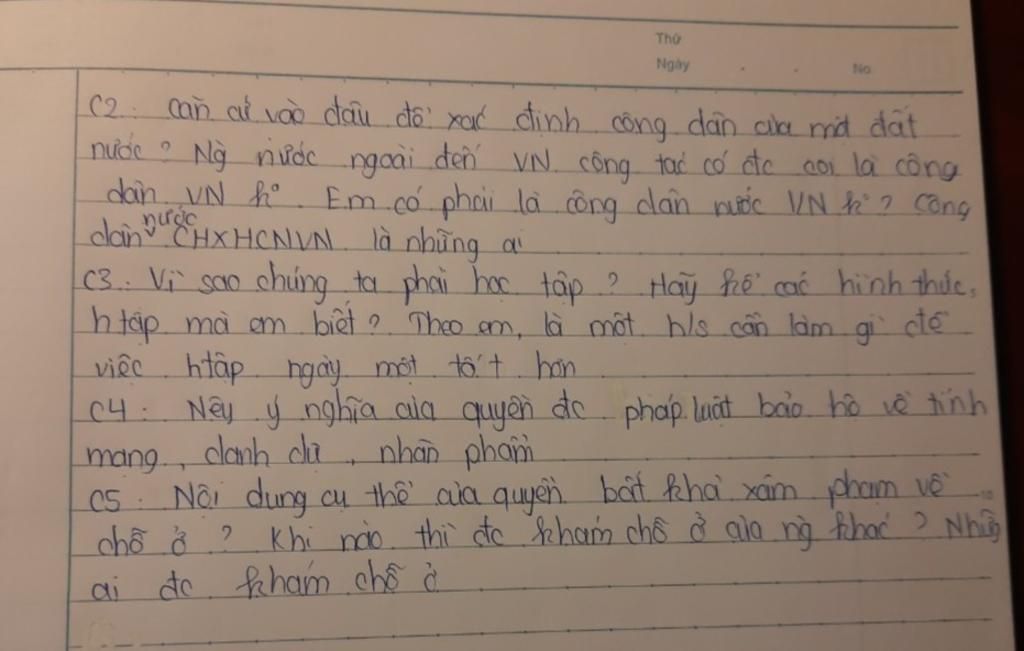 Thứ
Ngày . . No
C2. Căn cứ vào đâu để xác định công dân của một đất
nước? Ng nước ngoài đến VN công tác có đc coi là công
dân VN k°. Em có phải là công dân nước VN k°? Công
dân nước CHXHCNVN là những ai
C3. Vì sao chúng ta phải học tập? Hãy kể các hình thức
htập mà em biết? Theo em, là một h/s cần làm gì để
việc htập ngày một tốt hơn
C4. Nêu ý nghĩa của quyền đc pháp luật bảo hộ về tính
mạng, danh dự, nhân phẩm
C5. Nội dung cụ thể của quyền bất khả xâm phạm về
chỗ ở? Khi nào thì đc khám chỗ ở của ng khác? Những
ai đc khám chỗ ở